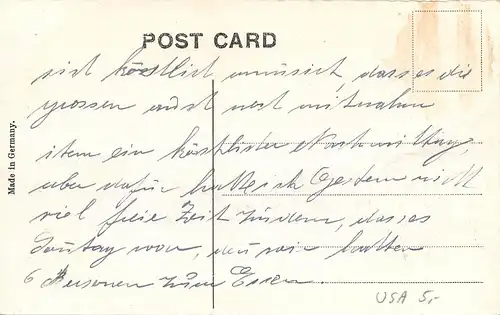 POST CARD
sich köstlich amüsiert, dass es die
grossen auch noch mitnahm
item ein köstlicher Nachmittag,
aber dafür hatte ich Gestern nicht
viel freie Zeit trotzdem, dass es
Sonntag war, denn wir hatten
6 Personen zum Essen.
Made in Germany.
USA 5,-